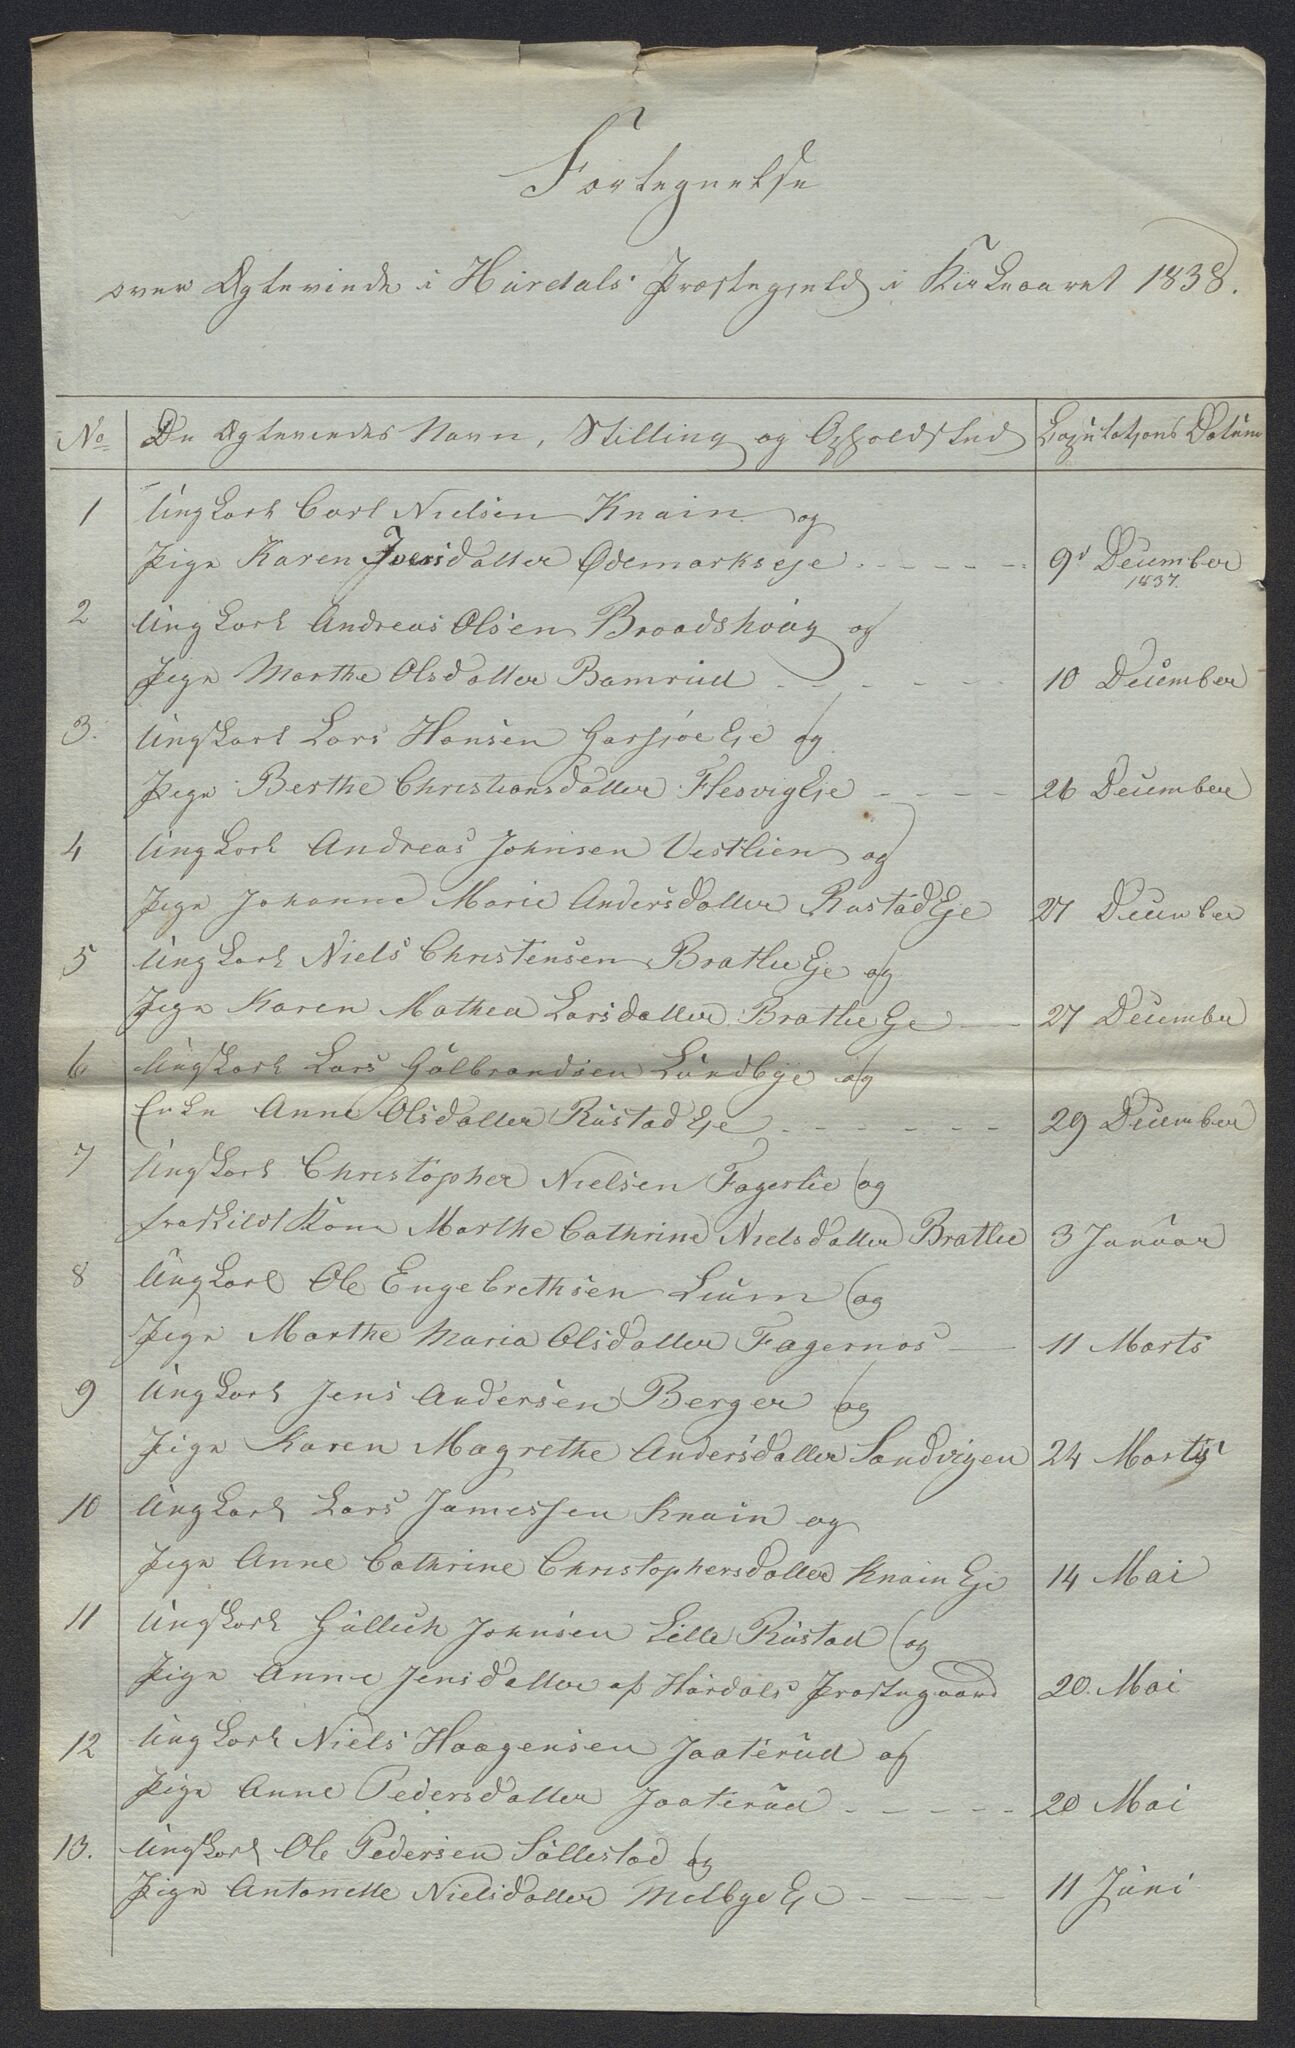 Fortegnelse
over Ægteviede i Hurdals Præstegjeld i Kirkeaaret 1838.
No De Ægteviedes Navn, Stilling og Opholdsted Copulations Datum
1 Ungkarl Carl Nielsen Knain og
Pige Karen Iversdatter Ødemarkseje 9de December
1837.
2 Ungkarl Andreas Olsen Braadshoug og
Pige Marthe Olsdatter Bamrud 10 December
3. Ungkarl Lars Hansen Garsjøe Eje og
Pige Berthe Christiansdatter Flesvig Eje 26 December
4 Ungkarl Andreas Johnsen Vestlien og
Pige Johanne Marie Andersdatter Rustad Eje 27 December
5 Ungkarl Niels Christensen Bratlie Eje og
Pige Karen Mathea Larsdatter Bratlie Eje 27 December
6 Ungkarl Lars Gulbrandsen Lundbye og
Enke Anne Olsdatter Rustad Eje 29 December
7 Ungkarl Christopher Nielsen Fagerlie og
fraskildt Kone Marthe Cathrine Nielsdatter Bratlie 3 Januar
8 Ungkarl Ole Engebrethsen Lium og
Pige Marthe Maria Olsdatter Fagernæs 11 Marts
9 Ungkarl Jens Andersen Berger og
Pige Karen Magrethe Andersdatter Sandvigen 24 Marts
10 Ungkarl Lars Jamessen Knain og
Pige Anne Cathrine Christophersdatter Knain Eje 14 Mai
11 Ungkarl Gullich Johnsen Lille Rustad og
Pige Anne Jensdatter af Hurdals Præstegaard 20. Mai
12 Ungkarl Niels Haagensen Jaaterud og
Pige Anne Pedersdatter Jaaterud 20 Mai
13. Ungkarl Ole Pedersen Sållestad og
Pige Antonette Nielsdatter Melbye Eje 11 Juni